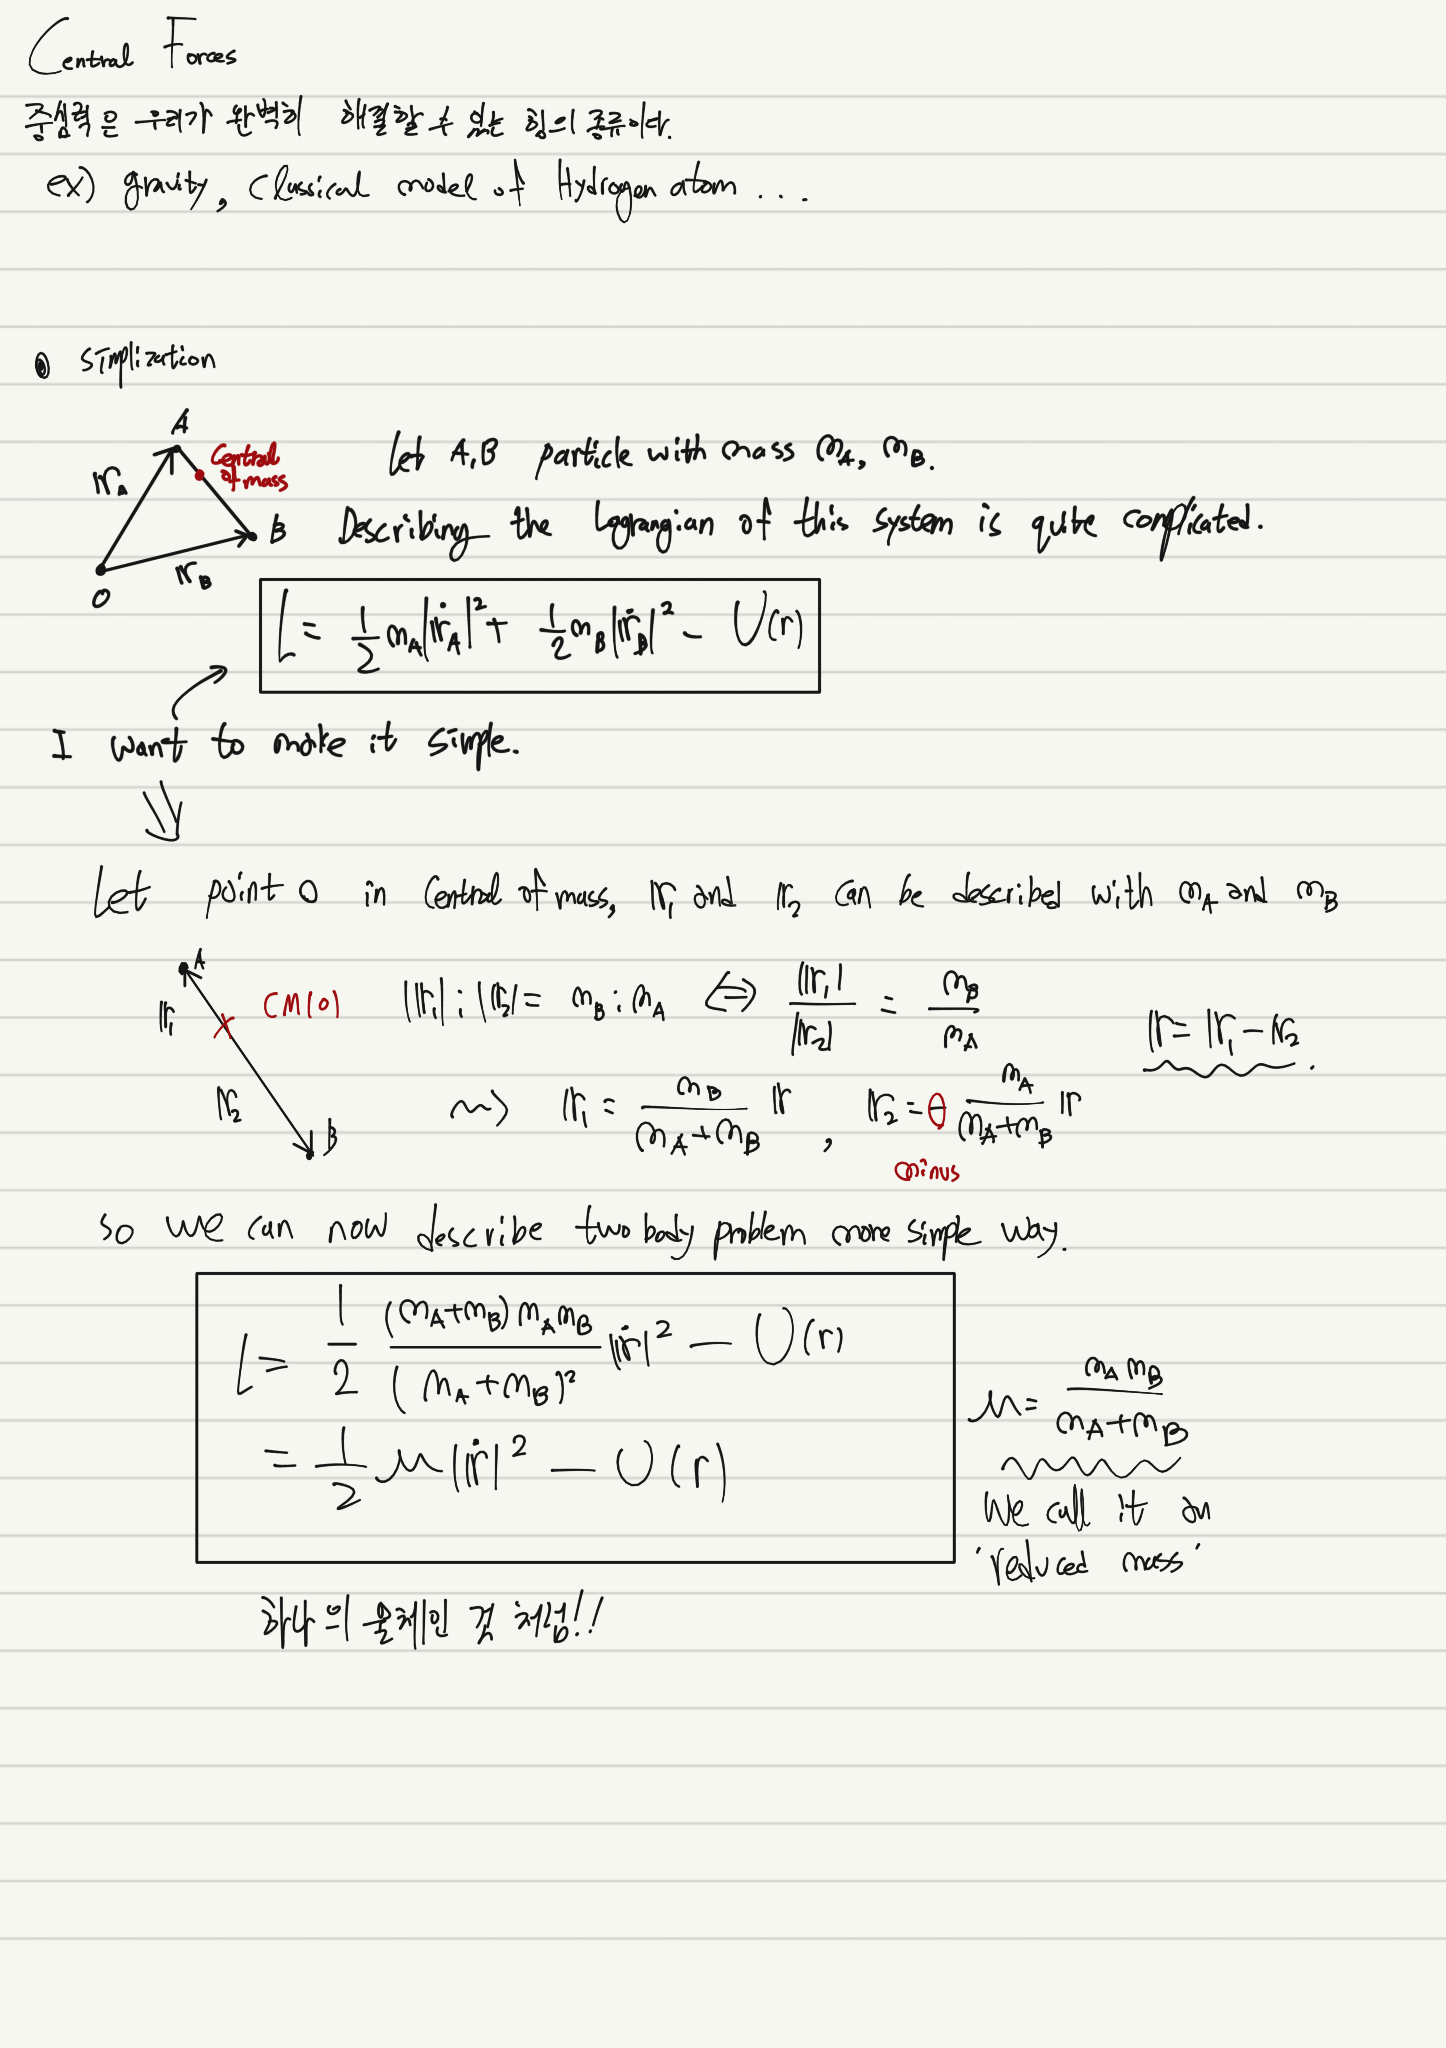 Central Forces
중심력은 우리가 완벽히 해결할 수 있는 힘의 종류이다.
ex) gravity, Classical model of Hydrogen atom ...
simplization
A
Central
of mass
𝕣_A
B
𝕣_B
O
Let A,B particle with mass m_A, m_B.
Describing the Lagrangian of this system is quite complicated.
L = 1/2 m_A|𝕣̇_A|² + 1/2 m_B|𝕣̇_B|² - U(r)
I want to make it simple.
Let point O in Central of mass, 𝕣₁ and 𝕣₂ can be described with m_A and m_B
A
𝕣₁
CM(O)
𝕣₂
B
|𝕣₁| : |𝕣₂| = m_B : m_A ⇔ |𝕣₁|/|𝕣₂| = m_B/m_A
𝕣 = 𝕣₁ - 𝕣₂.
⇝ 𝕣₁ = m_B/(m_A+m_B) 𝕣 , 𝕣₂ = - m_A/(m_A+m_B) 𝕣
minus
so we can now describe two body problem more simple way.
L = 1/2 (m_A+m_B) m_A m_B/(m_A+m_B)² |𝕣̇|² - U(r)
= 1/2 μ|𝕣̇|² - U(r)
μ = m_A m_B/(m_A+m_B)
We call it an
'reduced mass'
하나의 물체인 것 처럼!!